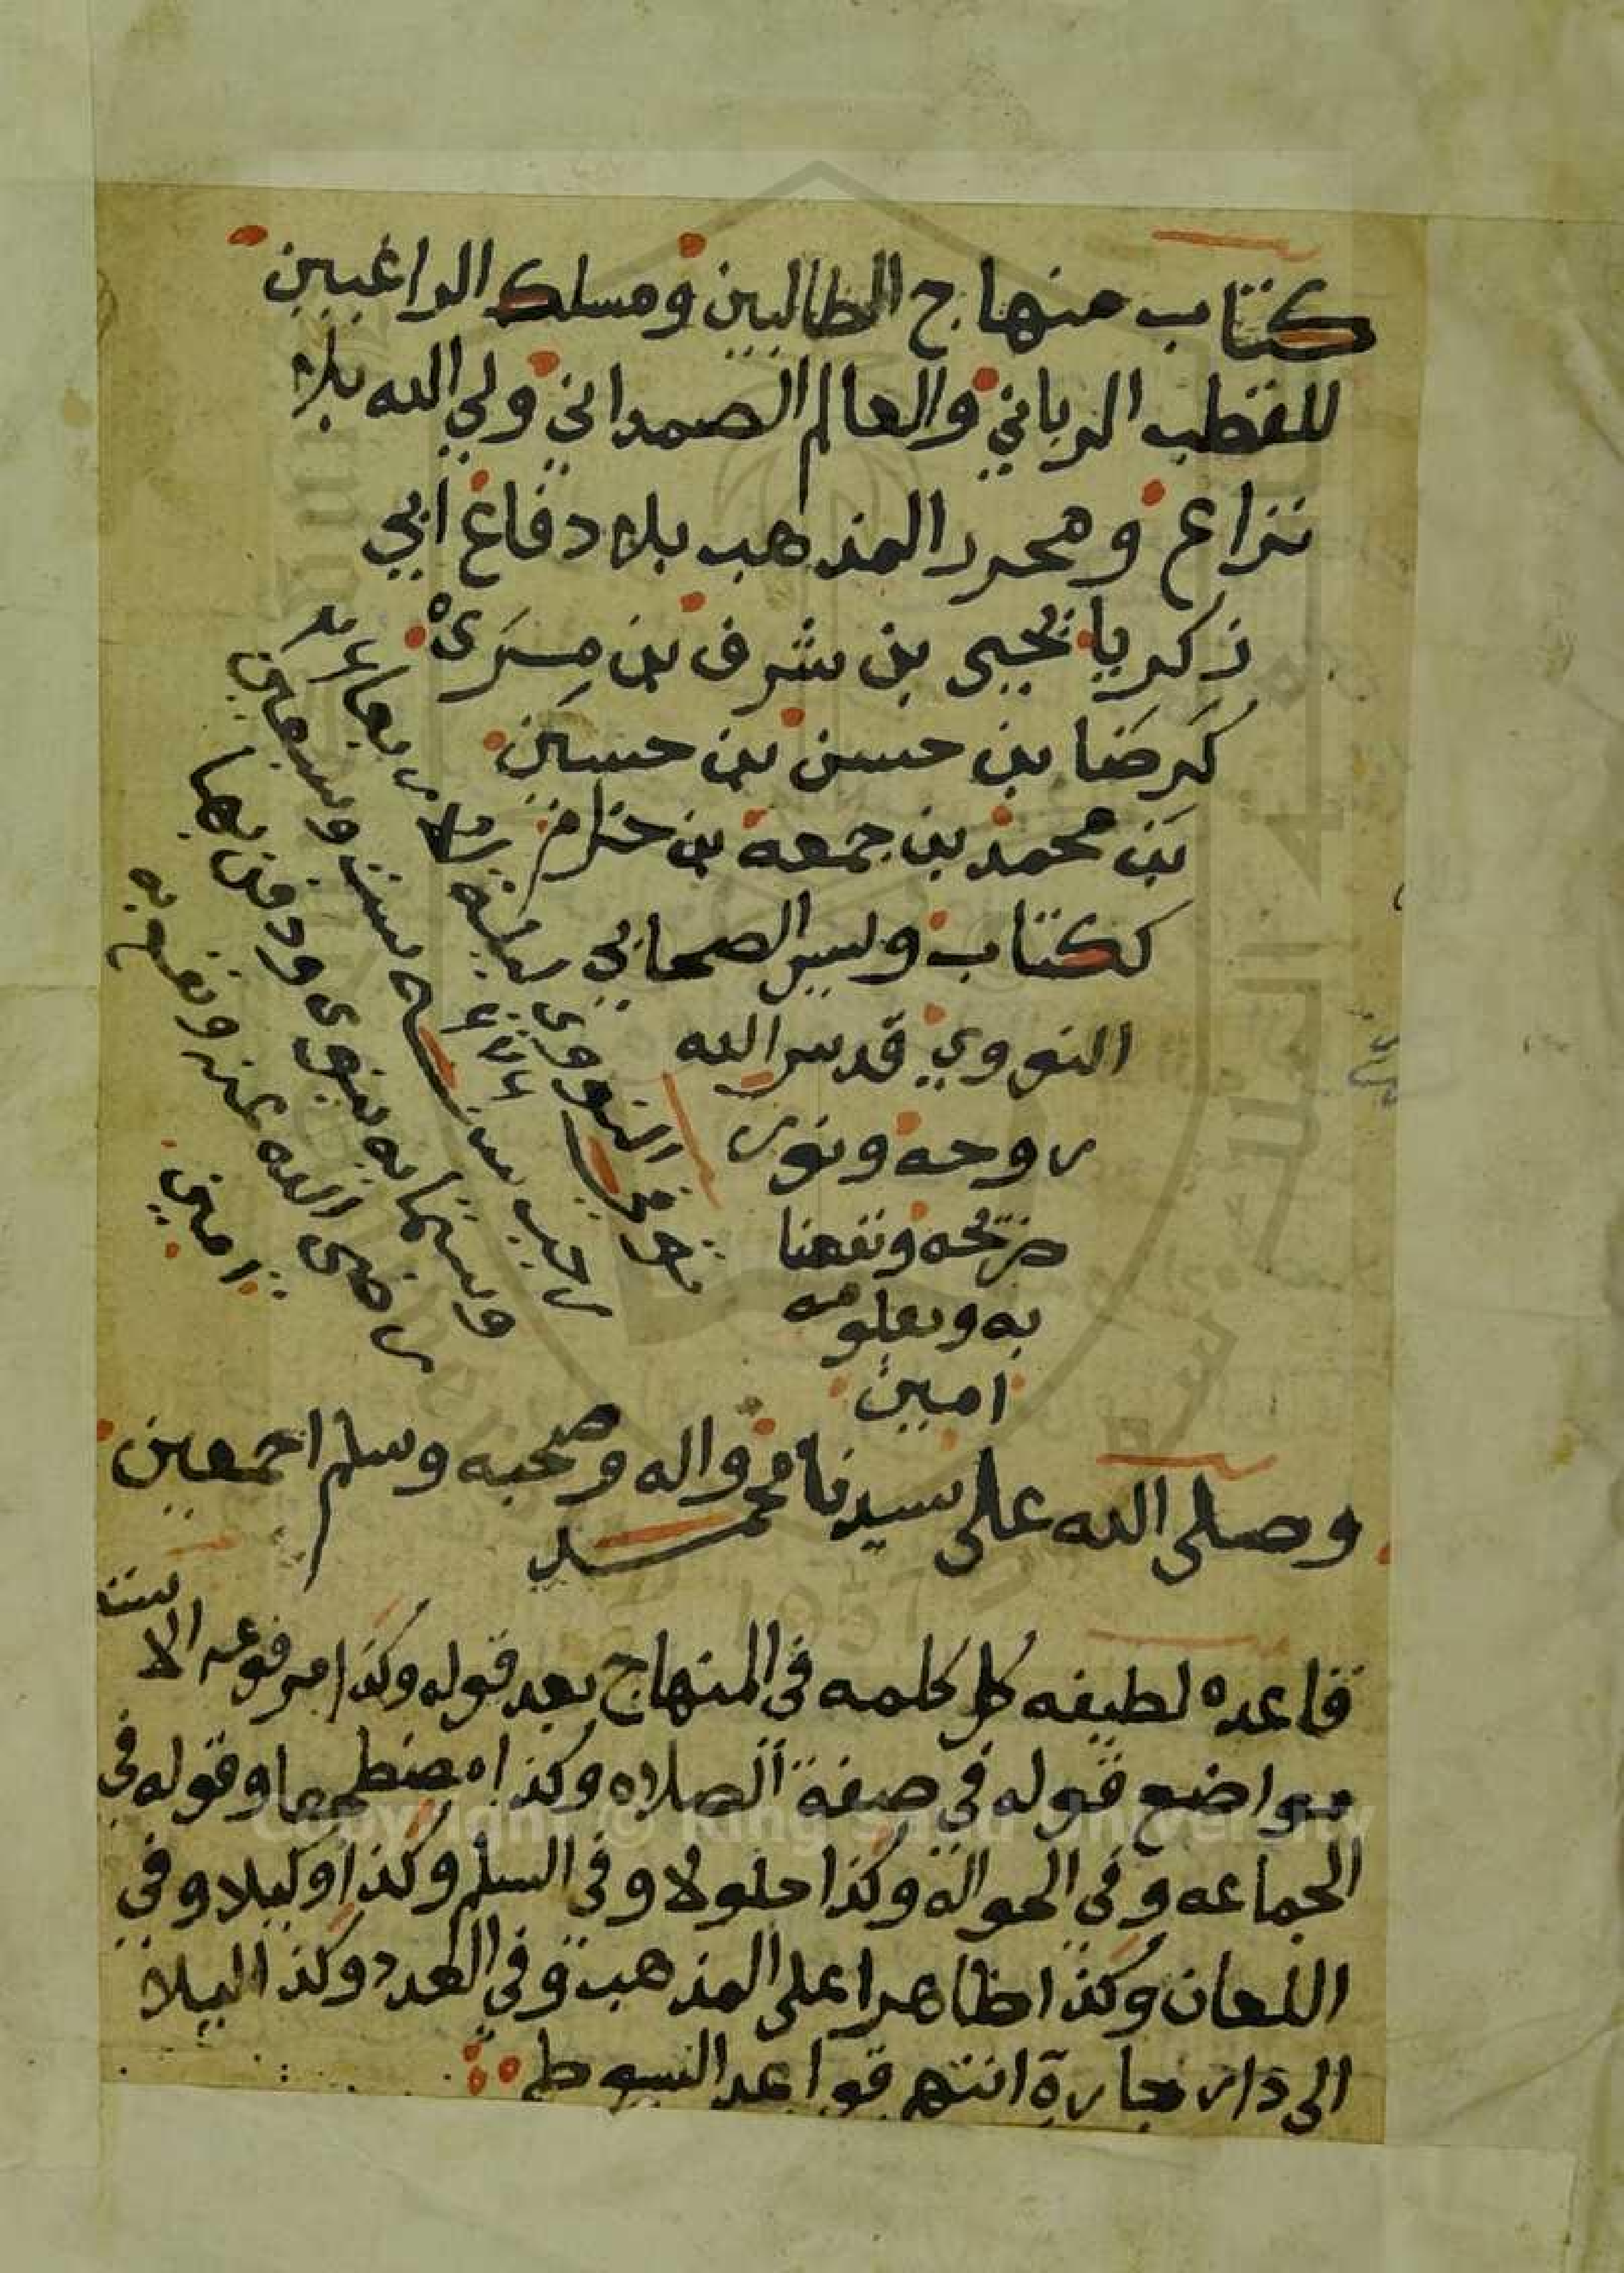 كتاب منهاج الطالبين ومسلك الراغبين
للقطب الرباني والعالم الصمداني ولي الله بلا
نزاع ومحرر المذهب بلا دفاع ابي
زكريا يحيى بن شرف بن مِرَىْ
كَرِضَا بن حسن بن حسين
بن محمد بن جمعة بن حزام
ككتاب وليس الصحابي
النووي قدس الله
روحه ونور
ضريحه ونفعنا
به وبعلومه
امين
توفي النووي
ليلة الاربعا
رجب سنة ست وسبعين
وستمايه بنوى ودفن بها
رضى الله عنه ونفع به
امين
وصلى الله على سيدنا محمد واله وصحبه وسلم اجمعين
قاعده لطيفه كل كلمه في المنهاج بعد قوله وكذا مرفوعه الا ستة
مواضع قوله في صفة الصلاه وكذا مضطجعا وقوله في
الجماعه وفي الحوالة وكذا حلولا وفي السلم وكذا كيلا وفي
اللعان وكذا ظاهرا على المذهب وفي العدد وكذا ليلا
الى دار جارة انتهى قواعد السيوطي
Copyright © King Saud University
1957